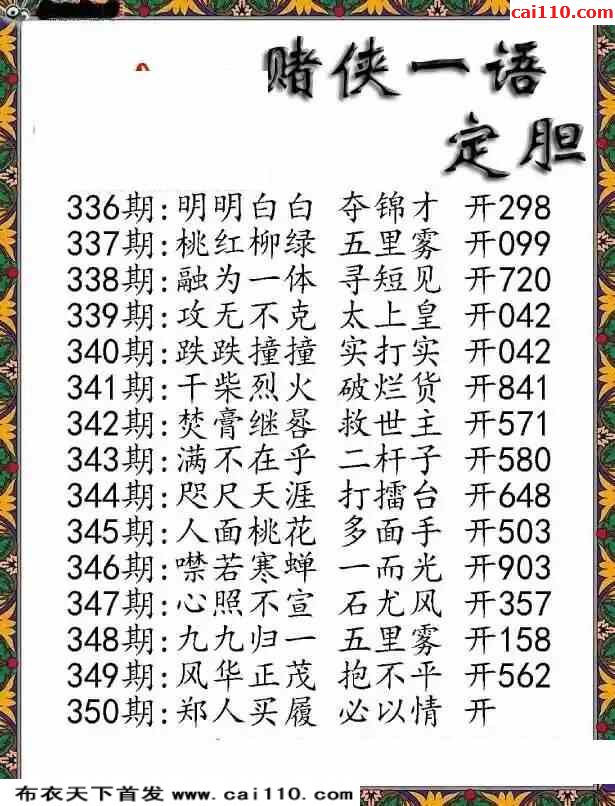 布衣天下
cai110.com
赌侠一语
定胆
336期:明明白白 夺锦才 开298
337期:桃红柳绿 五里雾 开099
338期:融为一体 寻短见 开720
339期:攻无不克 太上皇 开042
340期:跌跌撞撞 实打实 开042
341期:干柴烈火 破烂货 开841
342期:焚膏继晷 救世主 开571
343期:满不在乎 二杆子 开580
344期:咫尺天涯 打擂台 开648
345期:人面桃花 多面手 开503
346期:噤若寒蝉 一而光 开903
347期:心照不宣 石尤风 开357
348期:九九归一 五里雾 开158
349期:风华正茂 抱不平 开562
350期:郑人买履 必以情 开
布衣天下首发 www.cai110.com